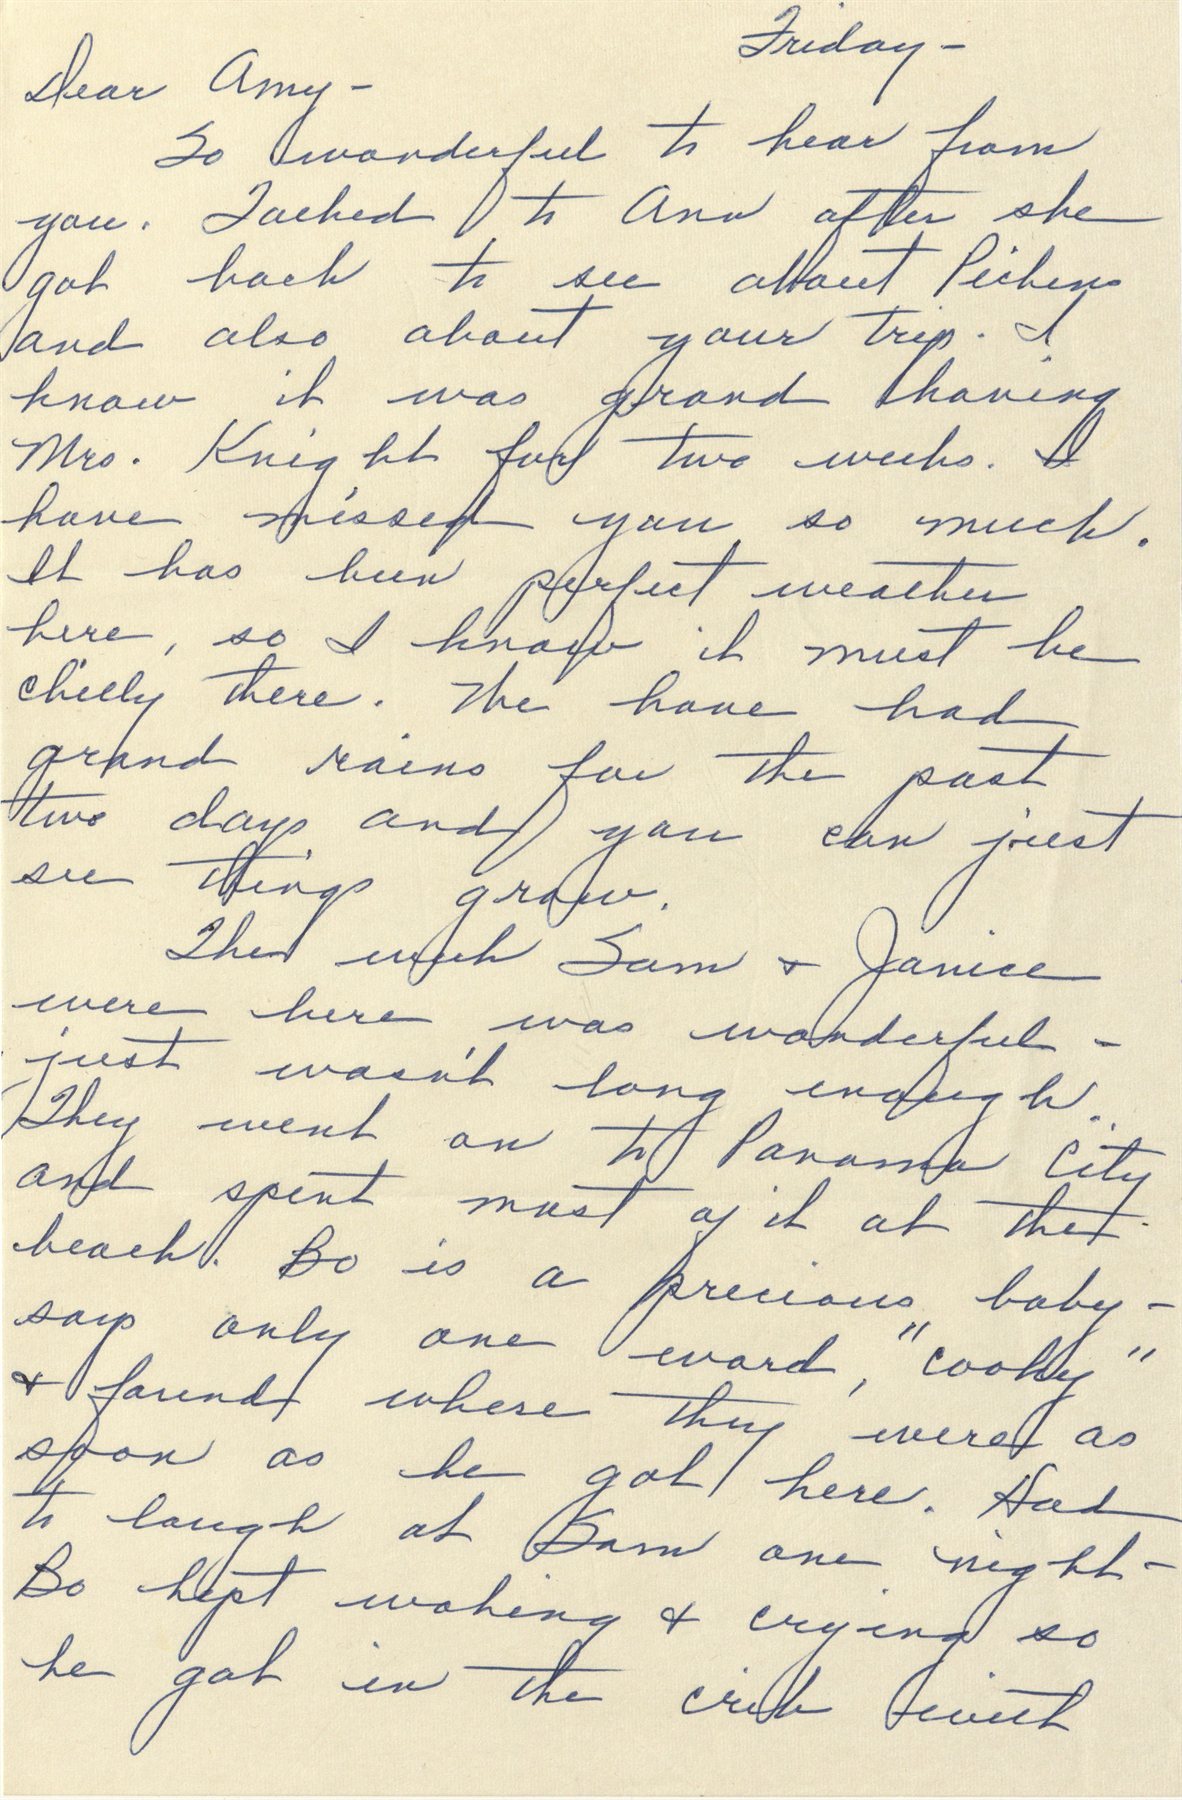 Friday -
Dear Amy -
So wonderful to hear from
you. Talked to Ann after she
got back to see about Pickens
and also about your trip. I
know it was grand having
Mrs. Knight for two weeks. I
have missed you so much.
It has been perfect weather
here, so I know it must be
chilly there. We have had
grand rains for the past
two days and you can just
see things grow.
The week Sam & Janice
were here was wonderful -
just wasn't long enough.
They went on to Panama City
and spent most of it at the
beach. Bo is a precious baby -
says only one word, "cooky"
& found where they were as
soon as he got here. Had
to laugh at Sam one night -
Bo kept waking & crying so
he got in the crib with